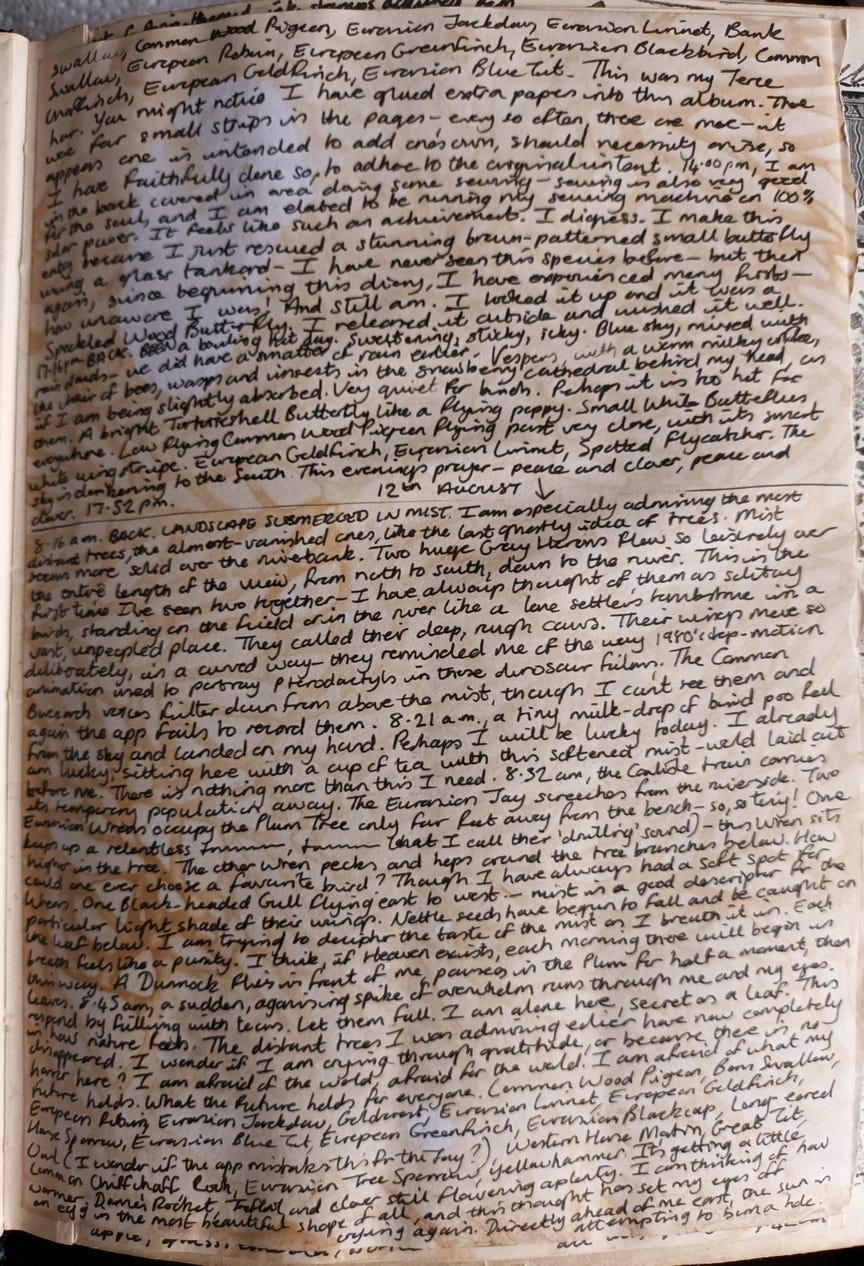 Swallow, Common Wood Pigeon, Eurasian Jackdaw, Eurasian Linnet, Bank
Swallow, European Robin, European Greenfinch, Eurasian Blackbird, Common
Chaffinch, European Goldfinch, Eurasian Blue Tit. This was my Terce
hour. You might notice I have glued extra papers into this album. There
were four small strips in the pages - every so often, there are more - it
appears one is intended to add one's own, should necessity arise, so
I have faithfully done so, to adhere to the original intent. 14.00pm, I am
in the back covered in area doing some sewing - sewing is also very good
for the soul, and I am elated to be running my sewing machine on 100%
solar power. It feels like such an achievement. I digress. I make this
entry because I just rescued a stunning brown-patterned small butterfly
using a glass tankard - I have never seen this species before - but then
again, since beginning this diary, I have experienced many firsts -
how unaware I was! And still am. I looked it up and it was a
Speckled Wood Butterfly. I released it outside and wished it well.
17.16pm. BACK. BEEN a boiling hot day. Sweltering, sticky, icky. Blue sky, mixed with
rain clouds - we did have a smatter of rain earlier. Vespers, with a warm milky coffee,
the choir of bees, wasps and insects in the strawberry cathedral behind my head, as
if I am being slightly absorbed. Very quiet for birds. Perhaps it is too hot for
them. A bright Tortoiseshell Butterfly like a flying poppy. Small White Butterflies
everywhere. Low flying Common Wood Pigeon flying past very close, with its smart
white wing stripe. European Goldfinch, Eurasian Linnet, Spotted Flycatcher. The
sky is darkening to the South. This evenings prayer - peace and clover, peace and
clover. 17.52pm.
12th AUGUST ↓
8.16a.m. BACK. LANDSCAPE SUBMERGED IN MIST. I am especially admiring the most
distant trees, the almost-vanished ones, like the last ghostly idea of trees. Mist
seems more solid over the riverbank. Two huge Gray Herons flew so leisurely over
the entire length of the view, from north to south, down to the river. This is the
first time I've seen two together - I have always thought of them as solitary
birds, standing on the field or in the river like a lone settlers tombstone in a
vast, unpeopled place. They called their deep, rough caws. Their wings move so
deliberately, in a curved way - they reminded me of the very 1980's stop-motion
animation used to portray Pterodactyls in those dinosaur films. The Common
Buzzards voices filter down from above the mist, though I can't see them and
again the app fails to record them. 8.21a.m., a tiny milk-drop of bird poo fell
from the sky and landed on my hand. Perhaps I will be lucky today. I already
am lucky, sitting here with a cup of tea with this softened mist-world laid out
before me. There is nothing more than this I need. 8.32am, the Carlisle train carries
its temporary population away. The Eurasian Jay screeches from the riverside. Two
Eurasian Wrens occupy the Plum Tree only four feet away from the bench - so, so tiny! One
keeps up a relentless (what I call their 'drilling' sound) - this Wren sits
higher in the tree. The other Wren pecks and hops around the tree branches below. How
could one ever choose a favourite bird? Though I have always had a soft spot for
Wrens. One Black-headed Gull flying east to west - mist is a good descriptor for the
particular light shade of their wings. Nettle seeds have begun to fall and be caught on
the leaf below. I am trying to decipher the taste of the mist as I breath it in. Each
breath feels like a purity. I think, if Heaven exists, each morning there will begin in
this way. A Dunnock flies in front of me, pauses in the Plum for half a moment, then
leaves. 8.45am, a sudden, agonising spike of overwhelm runs through me and my eyes
respond by filling with tears. Let them fall. I am alone here, secret as a leaf. This
is how nature feels. The distant trees I was admiring earlier have now completely
disappeared. I wonder if I am crying through gratitude, or because there is no
horror here? I am afraid of the world, afraid for the world. I am afraid of what my
future holds. What the future holds for everyone. Common Wood Pigeon, Barn Swallow,
European Robin, Eurasian Jackdaw, Goldcrest, Eurasian Linnet, European Goldfinch,
House Sparrow, Eurasian Blue Tit, European Greenfinch, Eurasian Blackcap, Long-eared
Owl (I wonder if the app mistakes this for the Jay?), Western House Martin, Great Tit,
Common Chiffchaff, Rook, Eurasian Tree Sparrow, Yellowhammer. It's getting a little
warmer. Dames Rocket, Trefoil, and clover still flowering aplenty. I am thinking of how
an egg is the most beautiful shape of all, and this thought has set my eyes off
crying again. Directly ahead of me east, the sun is
attempting to burn a hole.